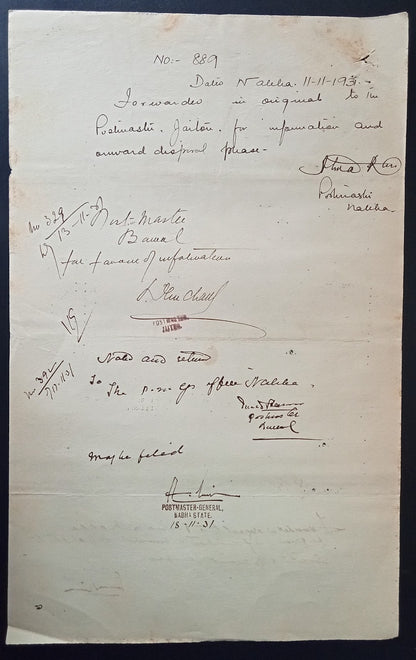 No:- 889
Dated Nabha 11-11-193
Forwarded in original to the
Postmaster, Jaitu, for information and
onward disposal please.
Postmaster
Nabha.
No 329
13-11-31
Post-Master
Bawal
for favour of information
POSTMASTER,
JAITU.
Noted and return
To
The P.M. Gs office Nabha.
No 392
17-11-31
Postmaster
Bawal
May be filed
POSTMASTER-GENERAL,
NABHA STATE.
18-11-31